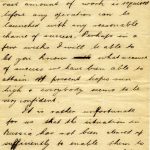 vast amount of work is required
before any operation can be
launched with any reasonable
chance of success. Perhaps in a
few weeks I will be able to
let you know what measure
of success we have been able to
attain. At present hopes run
high & everybody seems to be
very confident.
It is rather unfortunate
for us that the situation in
Russia has not been cleared up
sufficiently to enable them to